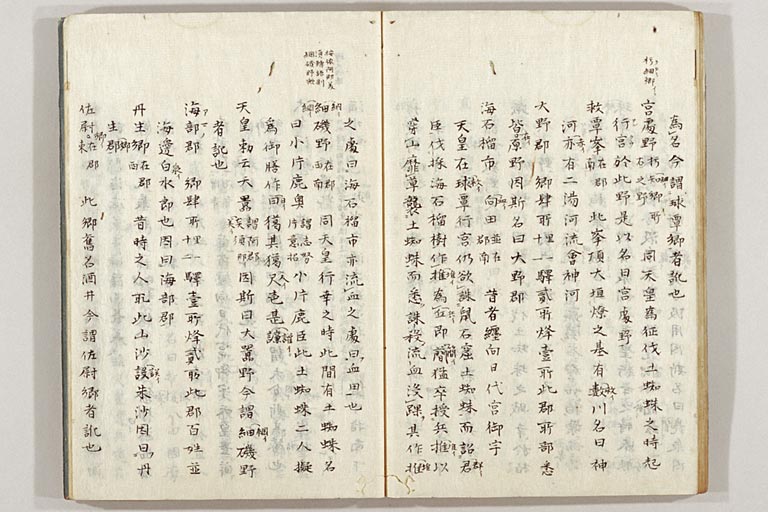 為名今謂球覃郷者訛也
宮處野 朽細郷所在之野 同天皇為征伐土蜘蛛之時起
行宮於此野是以名曰宮處野
救覃峯 在郡南 此峯頂火恒燎之基有數川名曰神
河亦有二湯河流會神河
大野郡 郷肆所 里一十一 驛貳所烽壹所此郡所部悉
皆原野因斯名曰大野郡
海石榴市 血田 並在郡南 昔者纏向日代宮御宇
天皇在球覃行宮仍欲誅鼠石窟土蜘蛛而詔群臣
臣伐採海石榴樹作椎為兵即簡猛卒授兵椎以
穿山靡草襲土蜘蛛而悉誅殺流血沒踝其作椎
之處曰海石榴市亦流血之處曰血田也
細磯野 在郡西南 同天皇行幸之時此間有土蜘蛛名
曰小片鹿奥 謂志努片意招 小片鹿臣此土蜘蛛二人擬
為御膳作田獵其獵人聲甚譁
天皇勅云大囂 謂阿那美須 因斯曰大囂野今謂細磯野
者訛也
海部郡 郷肆所 里一十二 驛壹所烽貳所此郡百姓並
海邊白水郎也因曰海部郡
丹生郷 在郡西 昔時之人取此山沙該朱沙因曰丹
生郷
佐尉郷 在郡東 此郷舊名酒井今謂佐尉郷者訛也